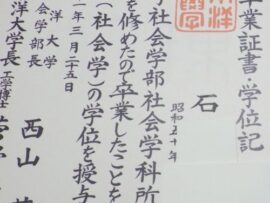 卒業証書・学位記
石
昭和五十年
学社会学部社会学科所
を修めたので卒業したことを
(社会学)の学位を授与
年三月二十五日
洋大学
会学部長
西山
洋大学長
工学博士